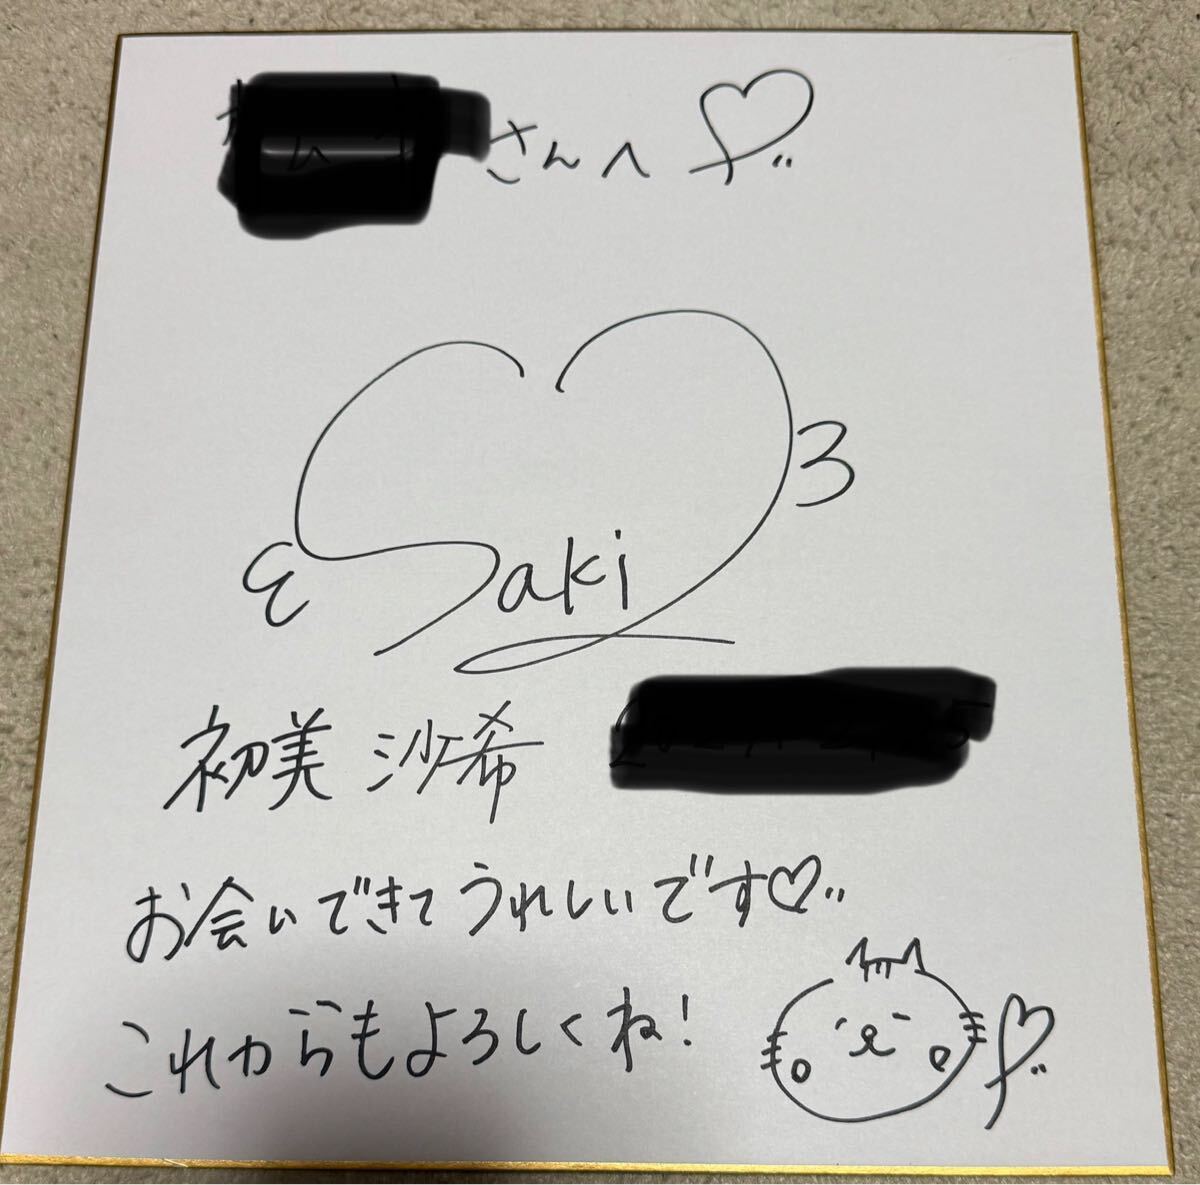 さんへ
Saki
初美 沙希
お会いできてうれしいです
これからもよろしくね!